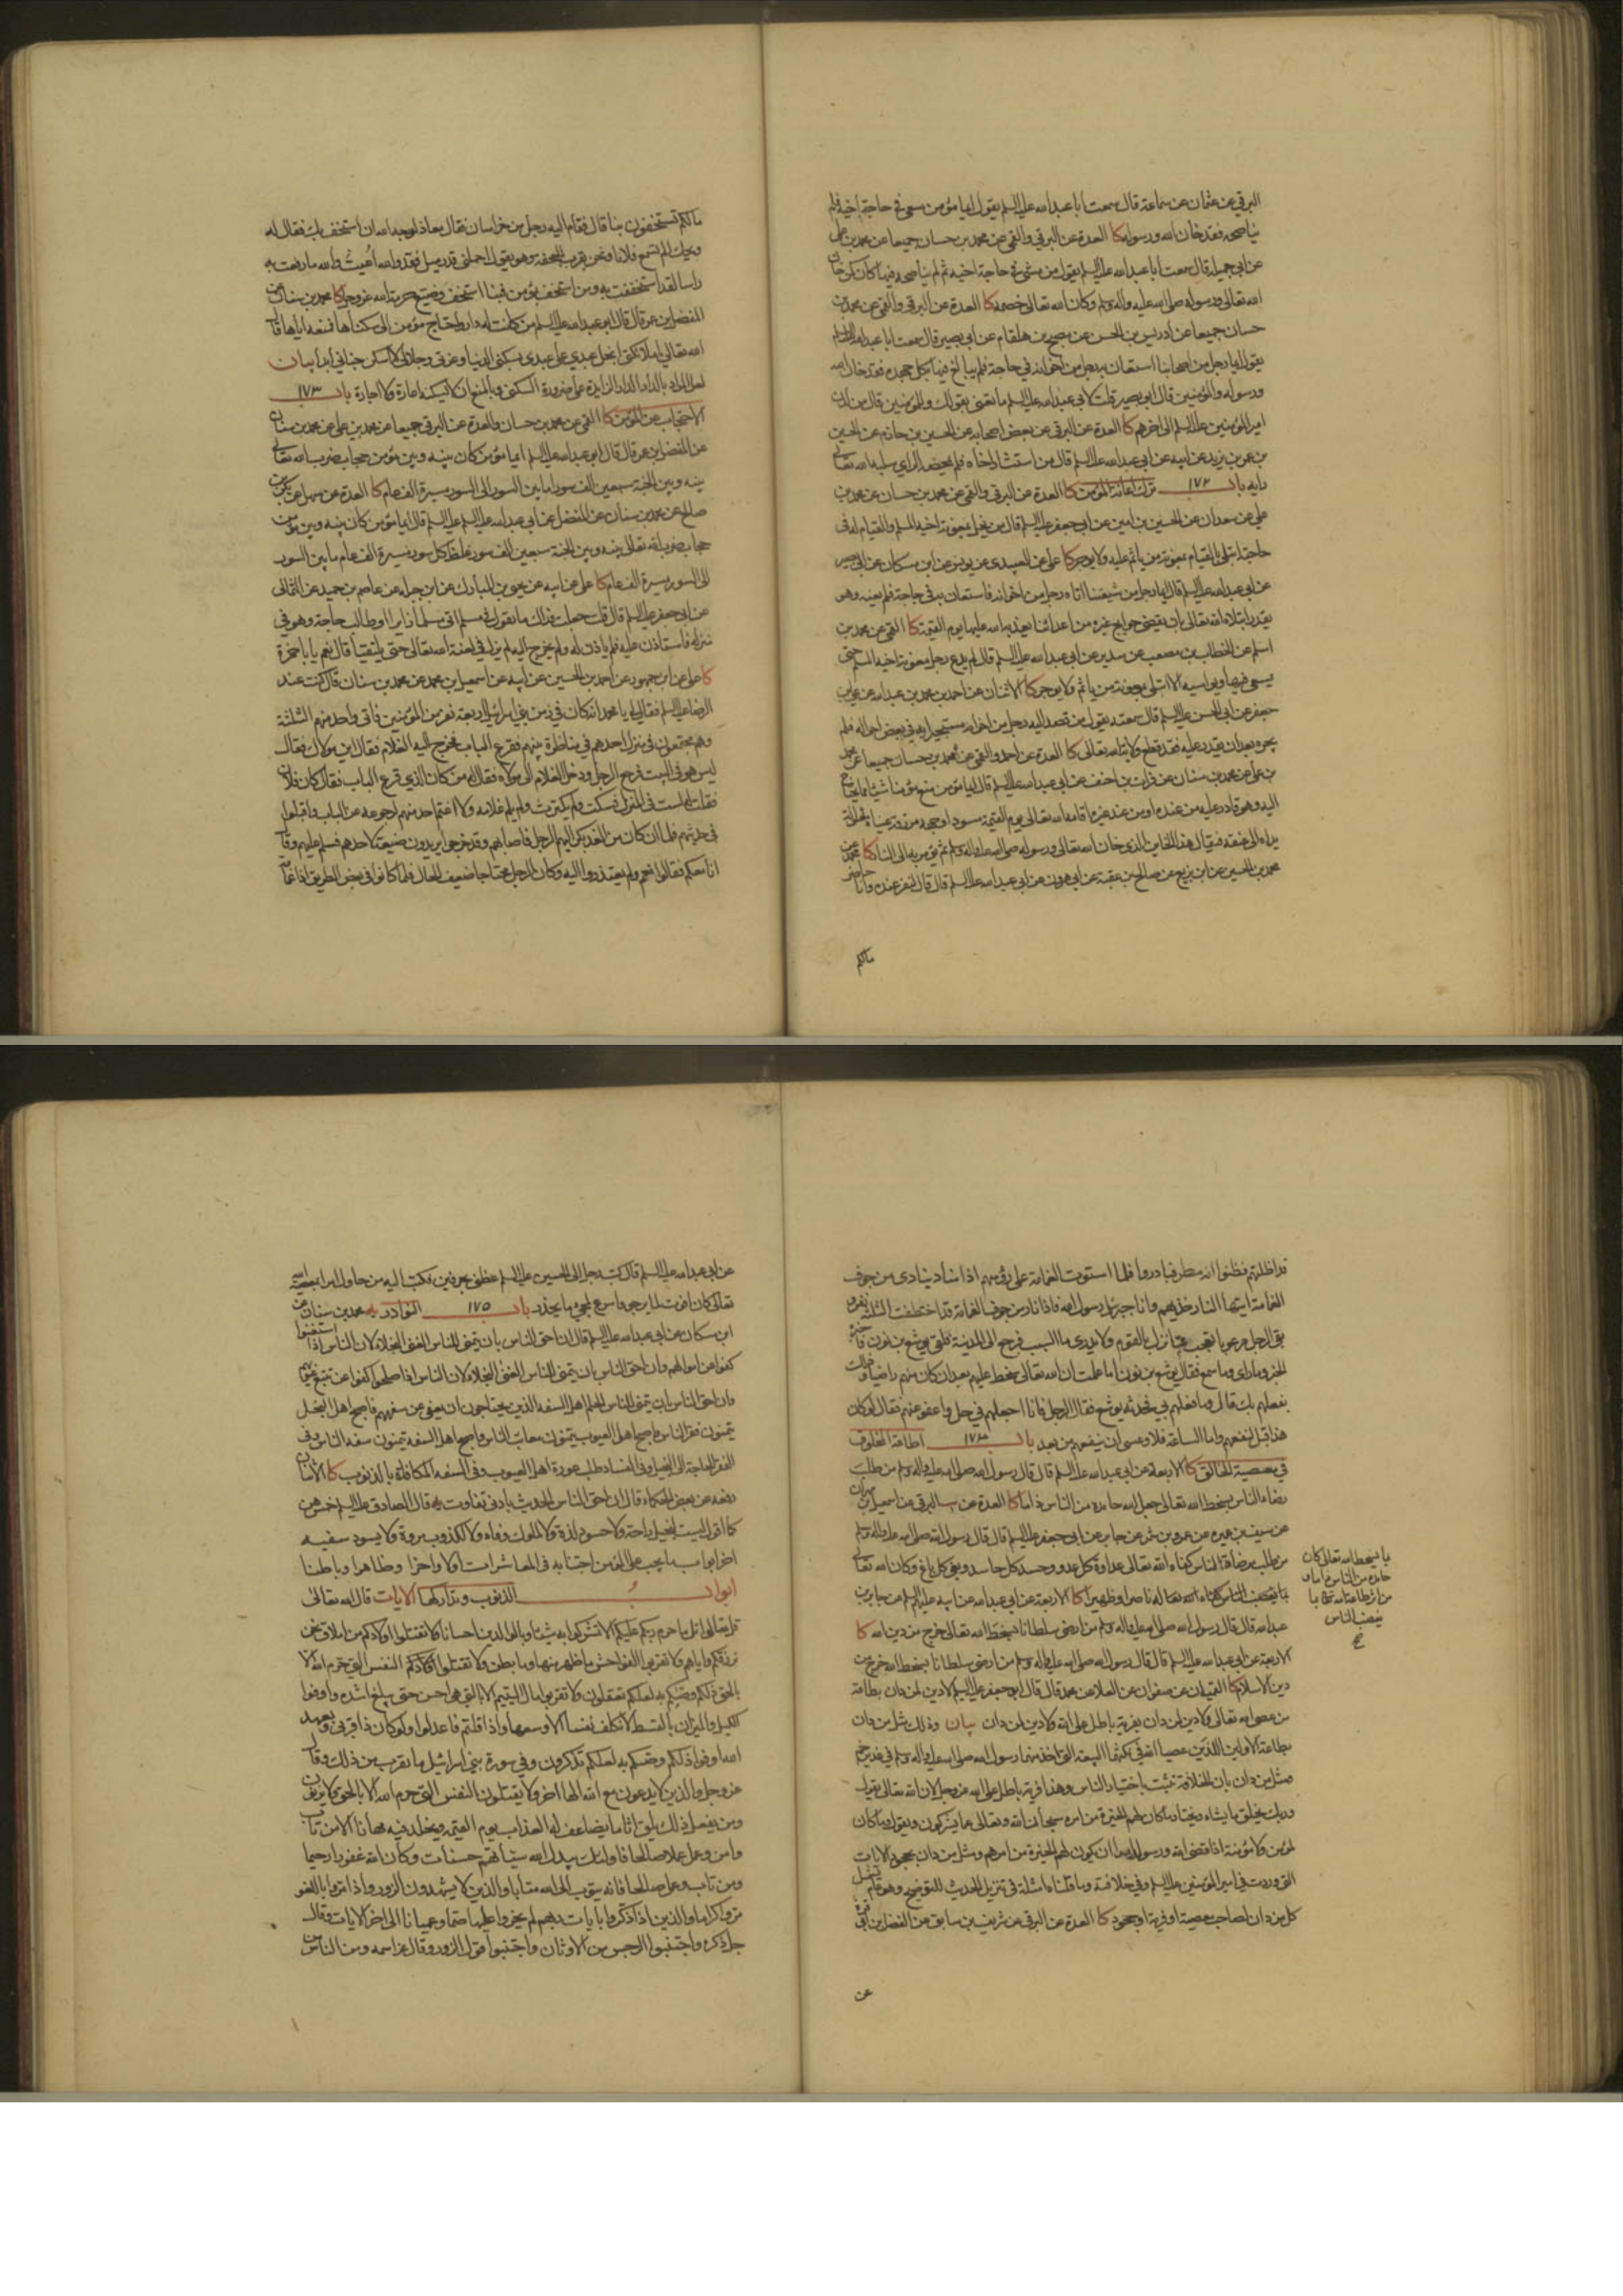 البرقي عن عثمان عن سماعة قال سمعت ابا عبد الله عليه السلم يقول ايما مؤمن سعى في حاجة اخيه فلم
يناصحه فقد خان الله ورسوله كا العدة عن البرقي والقمي عن محمد بن حسان جميعا عن محمد بن علي
عن ابي جميلة قال سمعت ابا عبد الله عليه السلم يقول من مشى في حاجة اخيه ثم لم يناصحه فيها كان كمن خان
الله تعالى ورسوله صلى الله عليه واله وسلم وكان الله تعالى خصمه كا العدة عن البرقي والقمي عن محمد بن
حسان جميعا عن ادريس بن الحسن عن مصبح بن هلقام عن ابي بصير قال سمعت ابا عبد الله عليه السلم
يقول ايما رجل من اصحابنا استعان به رجل من اخوانه في حاجة فلم يبالغ فيها بكل جهده فقد خان الله
ورسوله والمؤمنين قال ابو بصير قلت لابي عبد الله عليه السلم ما تعني بقولك والمؤمنين قال من لدن
امير المؤمنين عليه السلم الى اخرهم كا العدة عن البرقي عن بعض اصحابه عن الحسين بن حازم عن الحسين
بن عمر بن يزيد عن ابيه عن ابي عبد الله عليه السلم قال من استشار اخاه فلم يمحضه الراي سلبه الله تعالى
رايه باب ١٧٢ ترك اعانة المؤمن كا العدة عن البرقي والقمي عن محمد بن حسان عن محمد بن
علي عن سعدان عن الحسين بن امين عن ابي جعفر عليه السلم قال من بخل بمعونة اخيه المسلم والقيام له في
حاجته ابتلي بالقيام بمعونة من ياثم عليه ولا يوجر كا علي عن العبيدي عن يونس عن ابن مسكان عن ابي بصير
عن ابي عبد الله عليه السلم قال ايما رجل من شيعتنا اتاه رجل من اخوانه فاستعان به في حاجة فلم يعنه وهو
يقدر ابتلاه الله تعالى بان يقضي حوايج غيره من اعدائنا يعذبه الله عليها يوم القيمة كا القمي عن محمد بن
اسلم عن الخطاب بن مصعب عن سدير عن ابي عبد الله عليه السلم قال لم يدع رجل معونة اخيه المسلم حتى
يسعى فيها ويواسيه الا ابتلي بمعونة من ياثم ولا يوجر كا الاثنان عن احمد بن محمد بن عبد الله عن علي بن
جعفر عن ابي الحسن عليه السلم قال سمعته يقول من قصد اليه رجل من اخوانه مستجيرا به في بعض احواله فلم
يجره بعد ان يقدر عليه فقد قطع ولاية الله تعالى كا العدة عن احمد والقمي عن محمد بن حسان جميعا عن محمد
بن علي عن محمد بن سنان عن فرات بن احنف عن ابي عبد الله عليه السلم قال ايما مؤمن منع مؤمنا شيئا مما يحتاج
اليه وهو قادر عليه من عنده او من عند غيره اقامه الله تعالى يوم القيمة مسودا وجهه مزرقة عيناه مغلولة
يداه الى عنقه فيقال هذا الخاين الذي خان الله تعالى ورسوله صلى الله عليه واله وسلم ثم يؤمر به الى النار كا محمد عن
محمد بن الحسين عن ابن بزيع عن صالح بن عقبة عن ابي هرون عن ابي عبد الله عليه السلم قال قال لنفر عنده وانا حاضر
مالكم
مالكم تستخفون بنا قال فقام اليه رجل من خراسان فقال معاذ لوجه الله ان نستخف بك فقال له
ويحك الم تسمع فلانا ونحن بقرب الجحفة وهو يقول احملني قدر ميل فقد والله اعييت والله ما رفعت به
راسا لقد استخففت به ومن استخف بمؤمن فبنا استخف وضيع حرمة الله عز وجل كا محمد بن سنان عن
المفضل بن عمر قال قال ابو عبد الله عليه السلم من كانت له دار واحتاج مؤمن الى سكناها فمنعه اياها قال
الله تعالى يا ملائكتي ابخل عبدي على عبدي بسكنى الدنيا وعزتي وجلالي لا يسكن جناني ابدا بيان
لعل المراد بالدار الدار الزايدة على ضرورة السكنى وبالمنع ان لا يسكنه اعارة ولا اجارة باب ١٧٣
الاحتجاب عن المؤمن كا القمي عن محمد بن حسان والعدة عن البرقي جميعا عن محمد بن علي عن محمد بن سنان
عن المفضل بن عمر قال قال ابو عبد الله عليه السلم ايما مؤمن كان بينه وبين مؤمن حجاب ضرب الله تعالى
بينه وبين الجنة سبعين الف سور ما بين السور الى السور مسيرة الف عام كا العدة عن سهل عن بكر بن
صالح عن محمد بن سنان عن المفضل عن ابي عبد الله عليه السلم قال ايما مؤمن كان بينه وبين مؤمن
حجاب ضرب الله تعالى بينه وبين الجنة سبعين الف سور غلظ كل سور مسيرة الف عام ما بين السور
الى السور مسيرة الف عام كا علي عن ابيه عن يحيى بن المبارك عن ابن جبلة عن عاصم بن حميد عن الثمالي
عن ابي جعفر عليه السلم قال قلت جعلت فداك ما تقول في مسلم اتى مسلما زايرا او طالب حاجة وهو في
منزله فاستاذن عليه فلم ياذن له ولم يخرج اليه لم يزل في لعنة الله تعالى حتى يلتقيا قال نعم يا با حمزة
كا علي عن ابن جمهور عن احمد بن الحسين عن ابيه عن اسمعيل بن محمد عن محمد بن سنان قال كنت عند
الرضا عليه السلم فقال لي يا محمد انه كان في زمن بني اسرائيل اربعة نفر من المؤمنين فاتى واحد منهم الثلثة
وهم مجتمعون في منزل احدهم في مناظرة بينهم فقرع الباب فخرج اليه الغلام فقال اين مولاك فقال
ليس هو في البيت فرجع الرجل ودخل الغلام الى مولاه فقال له من كان الذي قرع الباب فقال كان فلان
فقلت له لست في المنزل فسكت ولم يكترث ولم يلم غلامه ولا اغتم احد منهم لرجوعه عن الباب واقبلوا
في حديثهم فلما ان كان من الغد بكر اليهم الرجل فاصابهم وقد خرجوا يريدون ضيعة لاحدهم فسلم عليهم وقال
انا معكم فقالوا نعم ولم يعتذروا اليه وكان الرجل محتاجا ضعيف الحال فلما كانوا في بعض الطريق اذا غمامة
قد اظلتهم فظنوا انه مطر فبادروا فلما استوت الغمامة على رؤسهم اذا مناد ينادي من جوف
الغمامة ايتها النار خذيهم وانا جبرئيل رسول الله فاذا نار من جوف الغمامة قد اختطفت الثلثة نفر و
بقي الرجل مرعوبا يعجب بما نزل بالقوم ولا يدري ما السبب فرجع الى المدينة فلقي يوشع بن نون فاخبره
الخبر وما راى وما سمع فقال يوشع بن نون اما علمت ان الله تعالى سخط عليهم بعد ان كان منهم راضيا وذلك
بفعلهم بك قال وما فعلهم بي فحدثه يوشع فقال الرجل فانا اجعلهم في حل واعفو عنهم فقال لو كان
هذا قبل لنفعهم واما الساعة فلا وعسى ان ينفعهم من بعد باب ١٧٤ اطاعة المخلوق
في معصية الخالق كا الاربعة عن ابي عبد الله عليه السلم قال قال رسول الله صلى الله عليه واله وسلم من طلب
رضاء الناس بسخط الله تعالى جعل الله حامده من الناس ذاما كا العدة عن البرقي عن اسمعيل بن مهران
عن سيف بن عميرة عن عمرو بن شمر عن جابر عن ابي جعفر عليه السلم قال قال رسول الله صلى الله عليه واله وسلم
من طلب مرضاة الناس كفاه الله تعالى عداوة كل عدو وحسد كل حاسد وبغي كل باغ وكان الله تعالى
له ناصرا وظهيرا كا الاربعة عن ابي عبد الله عن ابيه عليهما السلم عن جابر بن
عبد الله قال قال رسول الله صلى الله عليه واله وسلم من ارضى سلطانا بسخط الله تعالى خرج من دين الله كا
الاربعة عن ابي عبد الله عليه السلم قال قال رسول الله صلى الله عليه واله وسلم من ارضى سلطانا بسخط الله خرج من
دين الاسلام كا القميان عن صفوان عن العلا عن محمد قال قال ابو جعفر عليه السلم لا دين لمن دان بطاعة
من عصى الله تعالى ولا دين لمن دان بفرية باطل على الله ولا دين لمن دان بيان وذلك مثل من دان
بطاعة الاولين اللذين عصيا الله في نكثهما البيعة التي اخذ منهما رسول الله صلى الله عليه واله وسلم في غدير خم
ومثل من دان بان الخلافة تثبت باختيار الناس وهذا فرية باطل على الله عز وجل لان الله تعالى يقول
وربك يخلق ما يشاء ويختار ما كان لهم الخيرة من امرهم سبحان الله وتعالى عما يشركون ويقول وما كان
لمؤمن ولا مؤمنة اذا قضى الله ورسوله امرا ان يكون لهم الخيرة من امرهم ومثل من دان بجحود الايات
التي وردت في امير المؤمنين عليه السلم وفي خلافته وما قلناه امثلة في تنزيل الحديث للتوضيح وهو عام يشمل
كل من دان لصاحب معصية او فرية او جحود كا العدة عن البرقي عن شريف بن سابق عن الفضل بن ابي قرة
ما يسخط الله تعالى كان
حامده من الناس ذاما و
من اثر طاعة الله تعالى بما
يغضب الناس
عن
عن ابي عبد الله عليه السلم قال كتب رجل الى الحسين عليه السلم عظني بحرفين فكتب اليه من حاول امرا بمعصية الله
تعالى كان افوت لما يرجو واسرع لمجيء ما يحذر باب ١٧٥ النوادر يه محمد بن سنان عن
ابن مسكان عن ابي عبد الله عليه السلم قال ان احق الناس بان يتمنى للناس الغنى البخلاء لان الناس اذا استغنوا
كفوا عن اموالهم وان احق الناس بان يتمنى للناس لان الناس اذا صلحوا كفوا عن تتبع عيوبهم
وان احق الناس بان يتمنى للناس الحلم اهل السفه الذين يحتاجون ان يعفى عن سفههم فاصبح اهل البخل
يتمنون فقر الناس واصبح اهل العيوب يتمنون معايب الناس واصبح اهل السفه يتمنون سفه الناس وفي
الفقر الحاجة الى البخيل وفي الفساد طلب عورة اهل العيوب وفي السفه المكافاة بالذنوب كا الاثنان
رفعه عن بعض الحكماء قال ان احق الناس الحديث بادنى تفاوت يه قال الصادق عليه السلم خمس هن
كما اقول ليست لبخيل راحة ولا لحسود لذة ولا لملوك وفاء ولا لكذوب مروة ولا يسود سفيه
اخر ابواب ما يجب على المؤمن اجتنابه في المعاشرات اولا واخرا وظاهرا وباطنا
ابواب الذنوب وتداركها الايات قال الله تعالى
قل تعالوا اتل ما حرم ربكم عليكم الا تشركوا به شيئا وبالوالدين احسانا ولا تقتلوا اولادكم من املاق نحن
نرزقكم واياهم ولا تقربوا الفواحش ما ظهر منها وما بطن ولا تقتلوا النفس التي حرم الله الا
بالحق ذلكم وصيكم به لعلكم تعقلون ولا تقربوا مال اليتيم الا بالتي هي احسن حتى يبلغ اشده واوفوا
الكيل والميزان بالقسط لا نكلف نفسا الا وسعها واذا قلتم فاعدلوا ولو كان ذا قربى وبعهد
الله اوفوا ذلكم وصيكم به لعلكم تذكرون وفي سورة بني اسرائيل ما يقرب من ذلك وقال
عز وجل والذين لا يدعون مع الله الها اخر ولا يقتلون النفس التي حرم الله الا بالحق ولا يزنون
ومن يفعل ذلك يلق اثاما يضاعف له العذاب يوم القيمة ويخلد فيه مهانا الا من تاب
وامن وعمل عملا صالحا فاولئك يبدل الله سيئاتهم حسنات وكان الله غفورا رحيما
ومن تاب وعمل صالحا فانه يتوب الى الله متابا والذين لا يشهدون الزور واذا مروا باللغو
مروا كراما والذين اذا ذكروا بايات ربهم لم يخروا عليها صما وعميانا الى اخر الايات وقال
جل ذكره واجتنبوا الرجس من الاوثان واجتنبوا قول الزور وقال عز اسمه ومن الناس من